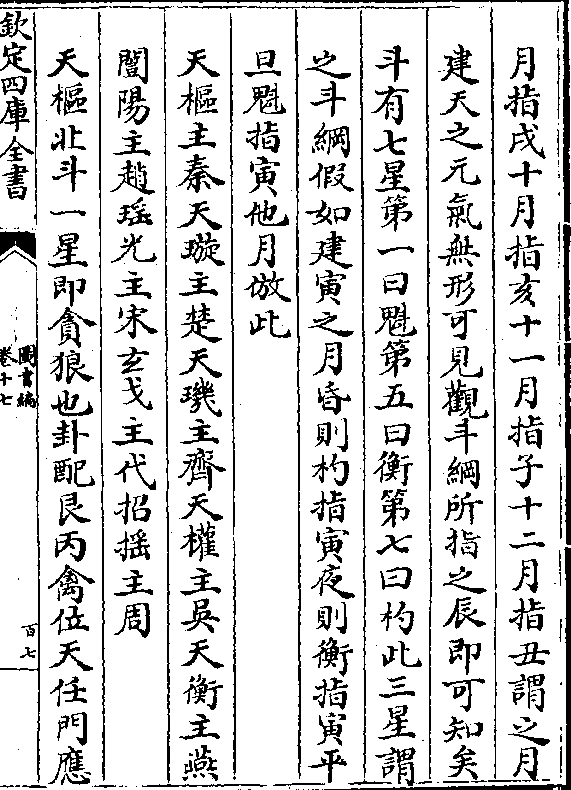 月指戌十月指亥十一月指子十二月指丑謂之月
建天之元氣無形可見觀斗綱所指之辰即可知矣
斗有七星第一曰魁第五曰衡第七曰杓此三星謂
之斗綱假如建寅之月昏則杓指寅夜則衡指寅平
旦魁指寅他月倣此
天樞主秦天璇主楚天璣主齊天權主吳天衡主燕
闓陽主趙瑶光主宋玄戈主代招摇主周
天樞北斗一星即貪狼也卦配艮丙禽位天任門應
欽定四庫全書
圖書編
卷十七
百七